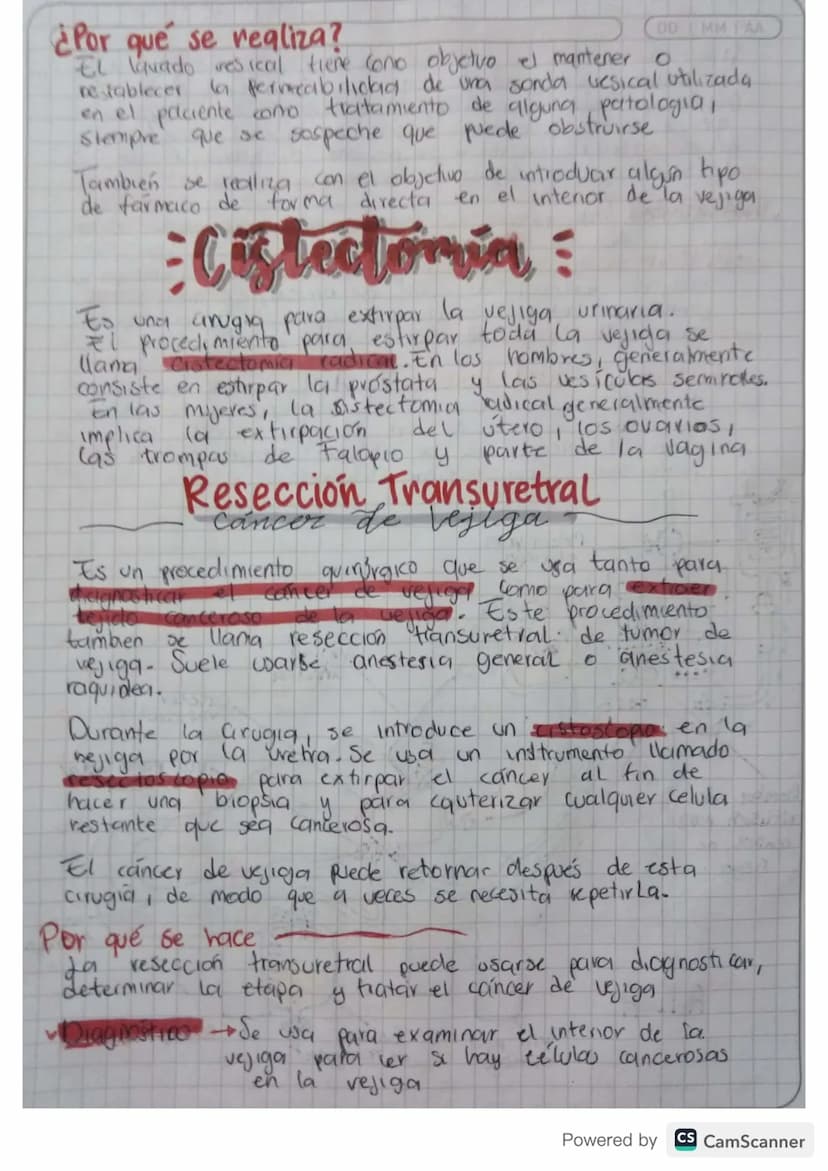 ¿Por qué se realiza?
DD MM AA
El lavado vesical tiene como objetivo el mantener o
restablecer la permeabilidad de una sonda vesical utilizada
en el paciente como tratamiento de alguna patologia,
siempre que se sospeche que puede obstruirse
Tambien se realiza con el objetivo de introducir algún tipo
de farmaco de forma directa en el interior de la vejiga
Cistectomía
Es una cirugia para extirpar la vejiga urinaria.
El procedimiento para estirpar toda la vejida se
llama cistectomia radical. En los hombres, generalmente
consiste en estirpar la próstata y las vesículas seminales.
En las mujeres, la sistectomia radical generalmente
implica la extirpación del útero, los ovarios,
las trompas de Falopio y parte de la vagina
Resección Transuretral
Cáncer de vejiga
Es un procedimiento quirúrgico que se usa tanto para
diagnosticar el cancer de vejiga como para extraer
tejido canceroso de la vejiga. Este procedimiento
tambien se llama reseccion transuretral de tumor de
vejiga. Suele usarse anestesia general o anestesia
raquidea.
Durante la cirugia, se introduce un cistoscopio en la
vejiga por la uretra. Se usa un instrumento llamado
resectoscopio para extirpar el cáncer al fin de
hacer una biopsia y para cauterizar cualquier celula
restante que sea cancerosa.
El cáncer de vejiga puede retornar después de esta
cirugia, de modo que a veces se necesita repetirla.
Por qué se hace
La resección transuretral puede usarse para diagnosticar,
determinar la etapa y tratar el cáncer de vejiga
Diagnóstico → Se usa para examinar el interior de la
vejiga para ver si hay células cancerosas
en la vejiga
Powered by CS CamScanner